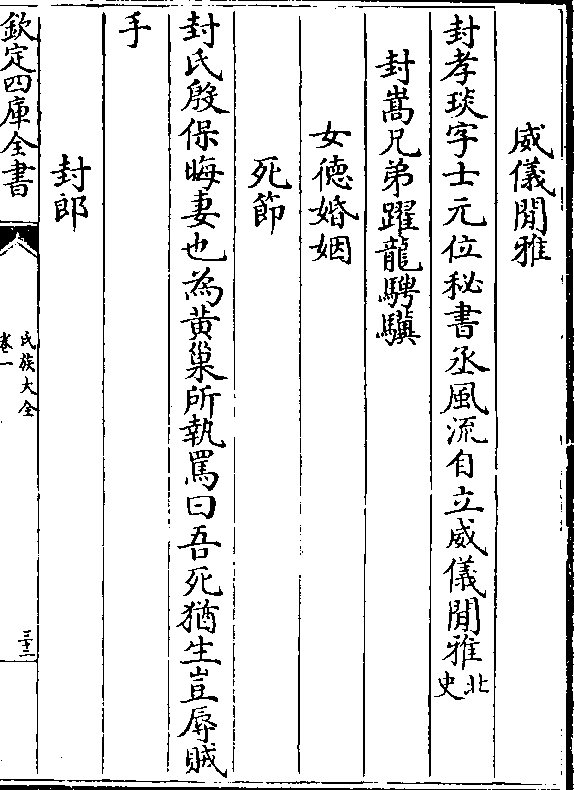 威儀閒雅
封孝琰字士元位秘書丞風流自立威儀閒雅北史
封嵩兄弟躍龍騁驥
女德婚姻
死節
封氏殷保晦妻也為黃巢所執罵曰吾死猶生豈辱賊
手
封郎
欽定四庫全書
氏族大全
卷一
三十二